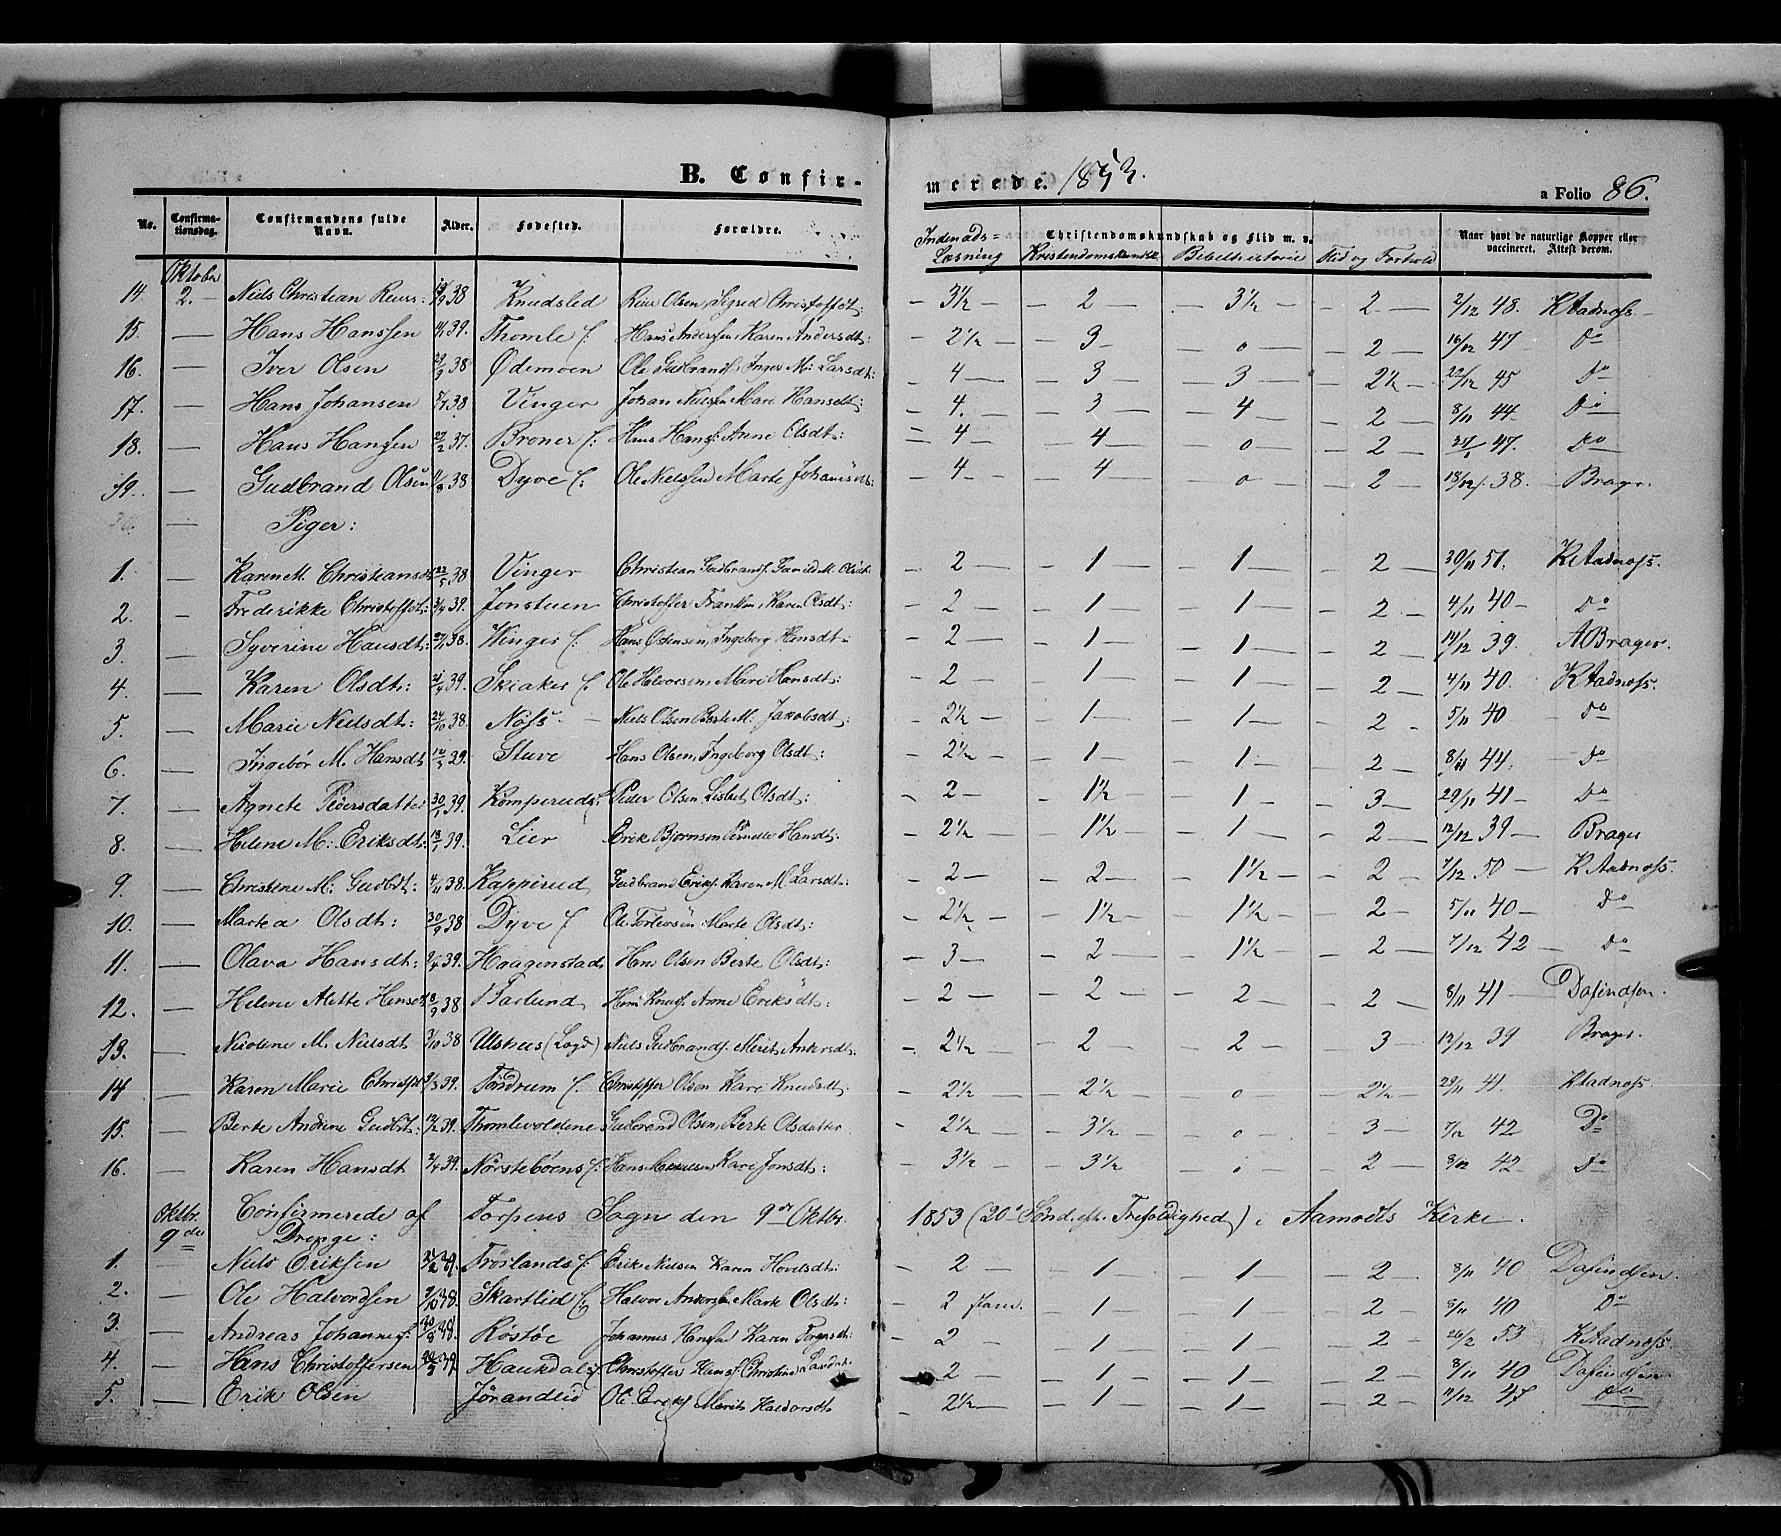 B. Confir-merede. 1853.
a Folio 86.
No. Confirmationsdag. Confirmandens fulde Navn. Alder. Fødested. Forældre. Indenads-Læsning Christendomskundskab og Flid m. v. Kristendomskundsk. Bibelhistorie Flid og Forhold Naar havt de naturlige Kopper eller vaccineret. Attest derom.
Oktober
14. 2. — Niels Christian Reiers: 38 Knudslid Reier Olsen, Sigrid Christoffdt: 3½ 2 3½ 2 2/12 48. K Aadnæss
15. — Hans Hanssen 39. Thomle f. Hans Anderssen, Karen Andersdt: 2½ 3 0 2 16/12 47 Do
16. — Iver Olsen 29/9 38 Ødemoen Ole Gudbrands. Inger M: Larsdt: 4 3 3 2½ 22/12 45 Do
17. — Hans Johansen 38 Vinger Johan Nielsen Mari Hansdt: 4. 3 4 2 8/11 44. Do
18. — Hans Hanssen 27/2 37. Broner f: Hans Hans. Anne Olsdt: 4 4 0 2 47. Do
19. — Gudbrand Olsen 38 Dyve f: Ole Nielssen Marte 4 4 0 2 18/12 38. Brager.
— Piger:
1. — Karen M. Christiansdt 22/5 38 Vinger Christian Gudbrands. Gunild M. Olsdt: 2 1 1 2 30/11 51. K Aadnæss.
2. — Frederikke Christoffdt: 3/4 39. Jonstuen Christoffer Karen Olsdt: 2 1 1 2 4/11 40 Do
3. — Syverine Hansdt: 38. Vinger f: Hans Ostensen, Ingeborg Hansdt 2 1 1 2 14/12 39. A Brager.
4. — Karen Olsdt: 21/4 39. Skiaker f. Ole Halvorsen, Mari Hansdt: 2 1 1 2 4/11 40. K Aadnæss.
5. — Marie Nielsdt: 24/10 38. Næss Niels Olsen Berte M. Jakobsdt: 2½ 1 1 2 5/11 40 Do
6. — Ingebør M. Hansdt 39. Stuve Hans Olsen, Ingeborg Olsdt: 2½ 1 1 2 8/11 44. Do
7. — Agnete Pedersdatter 30/1 39. Komperud f. Peder Olsen Lisbet Olsdt: 2 1½ 1 3 29/11 41 Do
8. — Helene M: Eriksdt: 18/1 39. Lier Erik Bjørnsen Pernelle Hansdt: 2½ 1½ 1 2 12/12 39 Brager
9. — Christine M: Gudbdt: 4/11 38. Kapperud Gudbrand Eriks. Karen M Larsdt: 2 2 1½ 2 7/12 50 K Aadnæss.
10. — Martea Olsdt: 30/9 38 Dyve f Ole Torlersen Marte Olsdt: 2½ 1½ 1½ 2 5/11 40 Do
11. — Olava Hansdt: 9/4 39. Haugenstad Hans Olsen Berte Olsdt: 3 2 1½ 2 7/12 42 Do
12. — Helene Mette Hansdt 18/9 38 Barlund Hans Knuds. Anne Eriksdt: 2 2 2 2 8/11 41 Dæsindsen.
13. — Nicoline M. Nielsdt 7/10 38 Ulsrus (Logd) Niels Gudbrands. Marit Andersdt. 2½ 2 2 3 12/12 39 Brager.
14 — Karen Marie Christofdt 9/3 39. Tøndrum f. Christoffer Olsen Kari Knudsdt: 2½ 2½ 0 2½ 29/11 41. K Aadnæss.
15. — Berte Andrine Gudbdt: 12/2 39. Thomlevoldene Gudbrand Olsen, Berte Olsdatter 2½ 3½ 0 3 7/12 42 Do
16. — Karen Hansdt 2/4 39. Nørstebøens f: Hans Kari Jonsdt: 3½ 3½ 2 8/12 42 Do
Oktbr. 9de Confirmerede af Torpens Sogn den 9de Oktbr. 1853 (20de Sønd. eft. Trefoldighed) i Aamodts Kirke.
Drenge:
1. — Niels Eriksen Trøslands f: Erik Nielsen Karen Hovelsdt: 2 1 1 2 8/11 40 Dæsindsen.
2. — Ole Halvordsen 9/10 38. Skartlid f: Halvor Anderssen Marte Olsdt: 2 1 1 2 8/11 40 Do
3. — Andreas Johannes. 38. Røstøe Johannes Hanssen Karen Torgersdt: 2 1 1 2 26/2 53 K Aadnæss.
4. — Hans Christoffersen Haukdals f Christoffer Hans. Christine Larsdt 2 1 1 2 8/11 40 Dæsindsen
5. Erik Olsen Jørandlid Ole Eriks. Marit Halvorsdt 2½ 1 1 2 11/12 47 Do